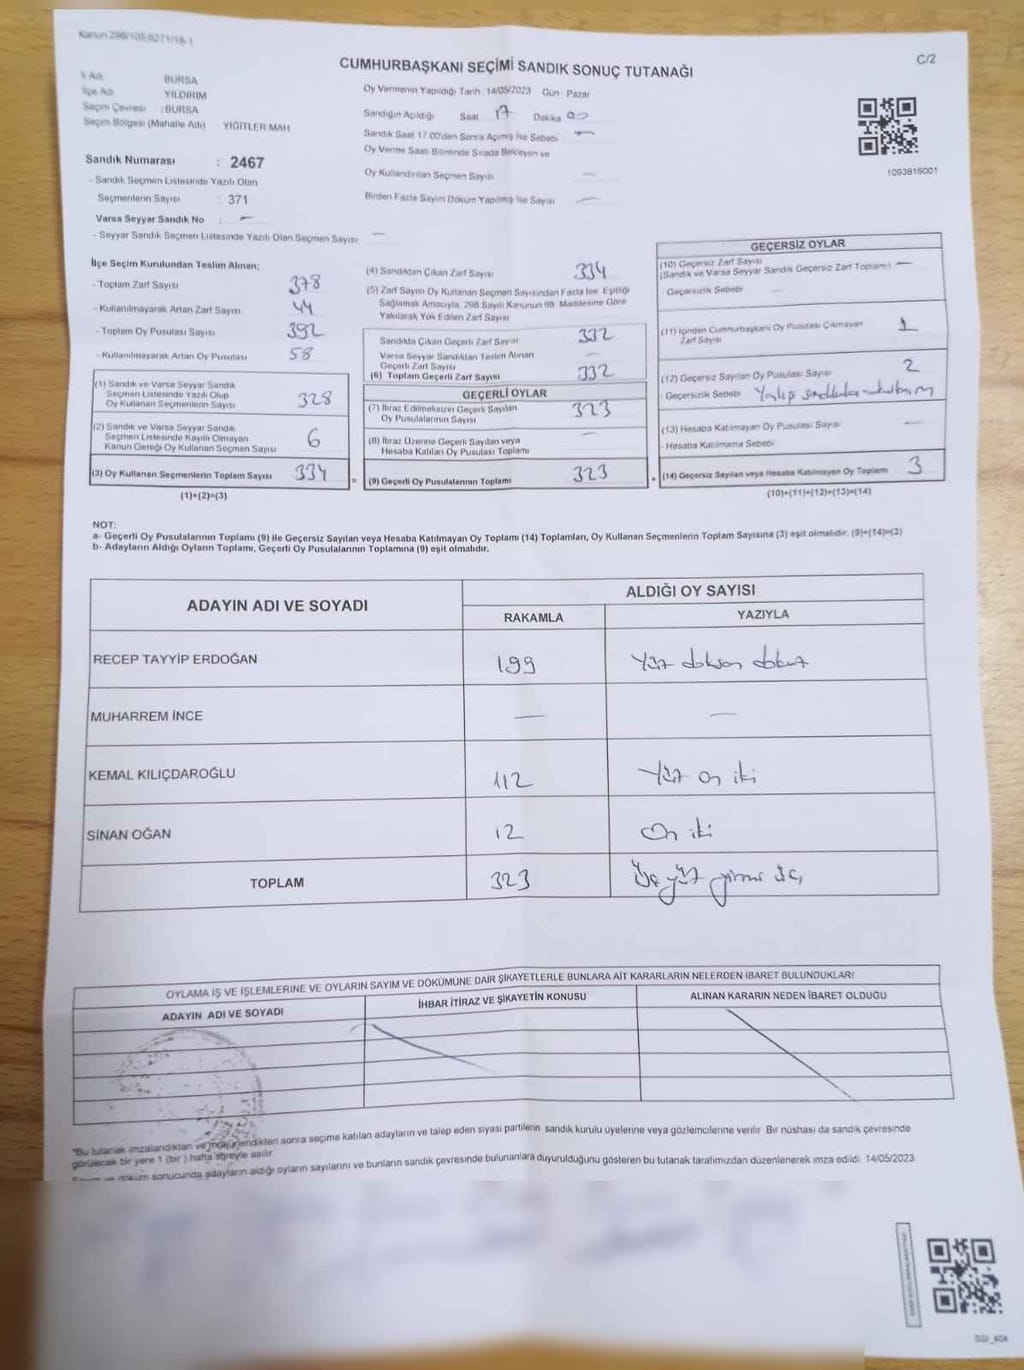 Kanun 298/105,6271/18-1
C/2
CUMHURBAŞKANI SEÇİMİ SANDIK SONUÇ TUTANAĞI
İl Adı BURSA
İlçe Adı YILDIRIM
Seçim Çevresi : BURSA
Seçim Bölgesi (Mahalle Adı) YİĞİTLER MAH
Sandık Numarası : 2467
- Sandık Seçmen Listesinde Yazılı Olan
Seçmenlerin Sayısı : 371
Varsa Seyyar Sandık No : -
- Seyyar Sandık Seçmen Listesinde Yazılı Olan Seçmen Sayısı -
Oy Vermenin Yapıldığı Tarih : 14/05/2023 Gün : Pazar
Sandığın Açıldığı Saat 17 Dakika 00
Sandık Saat 17.00'den Sonra Açılmış İse Sebebi -
Oy Verme Saati Bitiminde Sırada Bekleyen ve
Oy Kullandırılan Seçmen Sayısı -
Birden Fazla Sayım Döküm Yapılmış İse Sayısı -
1093816001
İlçe Seçim Kurulundan Teslim Alınan;
- Toplam Zarf Sayısı 378
- Kullanılmayarak Artan Zarf Sayısı 44
- Toplam Oy Pusulası Sayısı 392
- Kullanılmayarak Artan Oy Pusulası 58
(1) Sandık ve Varsa Seyyar Sandık
Seçmen Listesinde Yazılı Olup
Oy Kullanan Seçmenlerin Sayısı 328
(2) Sandık ve Varsa Seyyar Sandık
Seçmen Listesinde Kayıtlı Olmayan
Kanun Gereği Oy Kullanan Seçmen Sayısı 6
(3) Oy Kullanan Seçmenlerin Toplam Sayısı 334
(1)+(2)=(3)
(4) Sandıktan Çıkan Zarf Sayısı 334
(5) Zarf Sayısı Oy Kullanan Seçmen Sayısından Fazla İse, Eşitliği
Sağlamak Amacıyla, 298 Sayılı Kanunun 98. Maddesine Göre
Yakılarak Yok Edilen Zarf Sayısı
Sandıkta Çıkan Geçerli Zarf Sayısı 332
Varsa Seyyar Sandıktan Teslim Alınan
Geçerli Zarf Sayısı -
(6) Toplam Geçerli Zarf Sayısı 332
GEÇERLİ OYLAR
(7) İtiraz Edilmeksizin Geçerli Sayılan
Oy Pusulalarının Sayısı 323
(8) İtiraz Üzerine Geçerli Sayılan veya
Hesaba Katılan Oy Pusulası Toplamı -
= (9) Geçerli Oy Pusulalarının Toplamı 323
GEÇERSİZ OYLAR
(10) Geçersiz Zarf Sayısı
(Sandık ve Varsa Seyyar Sandık Geçersiz Zarf Toplamı) -
- Geçersizlik Sebebi
(11) İçinden Cumhurbaşkanı Oy Pusulası Çıkmayan
Zarf Sayısı 1
(12) Geçersiz Sayılan Oy Pusulası Sayısı 2
- Geçersizlik Sebebi
(13) Hesaba Katılmayan Oy Pusulası Sayısı -
- Hesaba Katılmama Sebebi
+ (14) Geçersiz Sayılan veya Hesaba Katılmayan Oy Toplamı 3
(10)+(11)+(12)+(13)=(14)
NOT:
a- Geçerli Oy Pusulalarının Toplamı (9) ile Geçersiz Sayılan veya Hesaba Katılmayan Oy Toplamı (14) Toplamları, Oy Kullanan Seçmenlerin Toplam Sayısına (3) eşit olmalıdır. (9)+(14)=(3)
b- Adayların Aldığı Oyların Toplamı, Geçerli Oy Pusulalarının Toplamına (9) eşit olmalıdır.
ADAYIN ADI VE SOYADI
ALDIĞI OY SAYISI
RAKAMLA YAZIYLA
RECEP TAYYİP ERDOĞAN 199 Yüz doksan dokuz
MUHARREM İNCE - -
KEMAL KILIÇDAROĞLU 112 Yüz on iki
SİNAN OĞAN 12 On iki
TOPLAM 323 Üç yüz yirmi üç
OYLAMA İŞ VE İŞLEMLERİNE VE OYLARIN SAYIM VE DÖKÜMÜNE DAİR ŞİKAYETLERLE BUNLARA AİT KARARLARIN NELERDEN İBARET BULUNDUKLARI
ADAYIN ADI VE SOYADI İHBAR İTİRAZ VE ŞİKAYETİN KONUSU ALINAN KARARIN NEDEN İBARET OLDUĞU
*Bu tutanak imzalandıktan ve mühürlendikten sonra seçime katılan adayların ve talep eden siyasi partilerin sandık kurulu üyelerine veya gözlemcilerine verilir. Bir nüshası da sandık çevresinde
görülecek bir yere 1 (bir) hafta süreyle asılır.
Sayım ve döküm sonucunda adayların aldığı oyların sayılarını ve bunların sandık çevresinde bulunanlara duyurulduğunu gösteren bu tutanak tarafımızdan düzenlenerek imza edildi. 14/05/2023